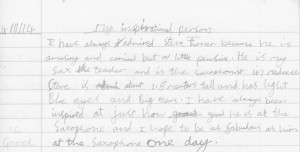 4/10/14 inspirational person
I have always admired Steve Turner because he is
amazing and comical but a little pensive. He is my
Sax teacher and is the saxophonist in
Steve is about 1.8 meters tall and has light
Blue eyes and Big ears. I have always been
inspired at Just how good he is at the
Saxophone and I hope to be as fabulous as him
at the Saxophone one day.
IC
Good